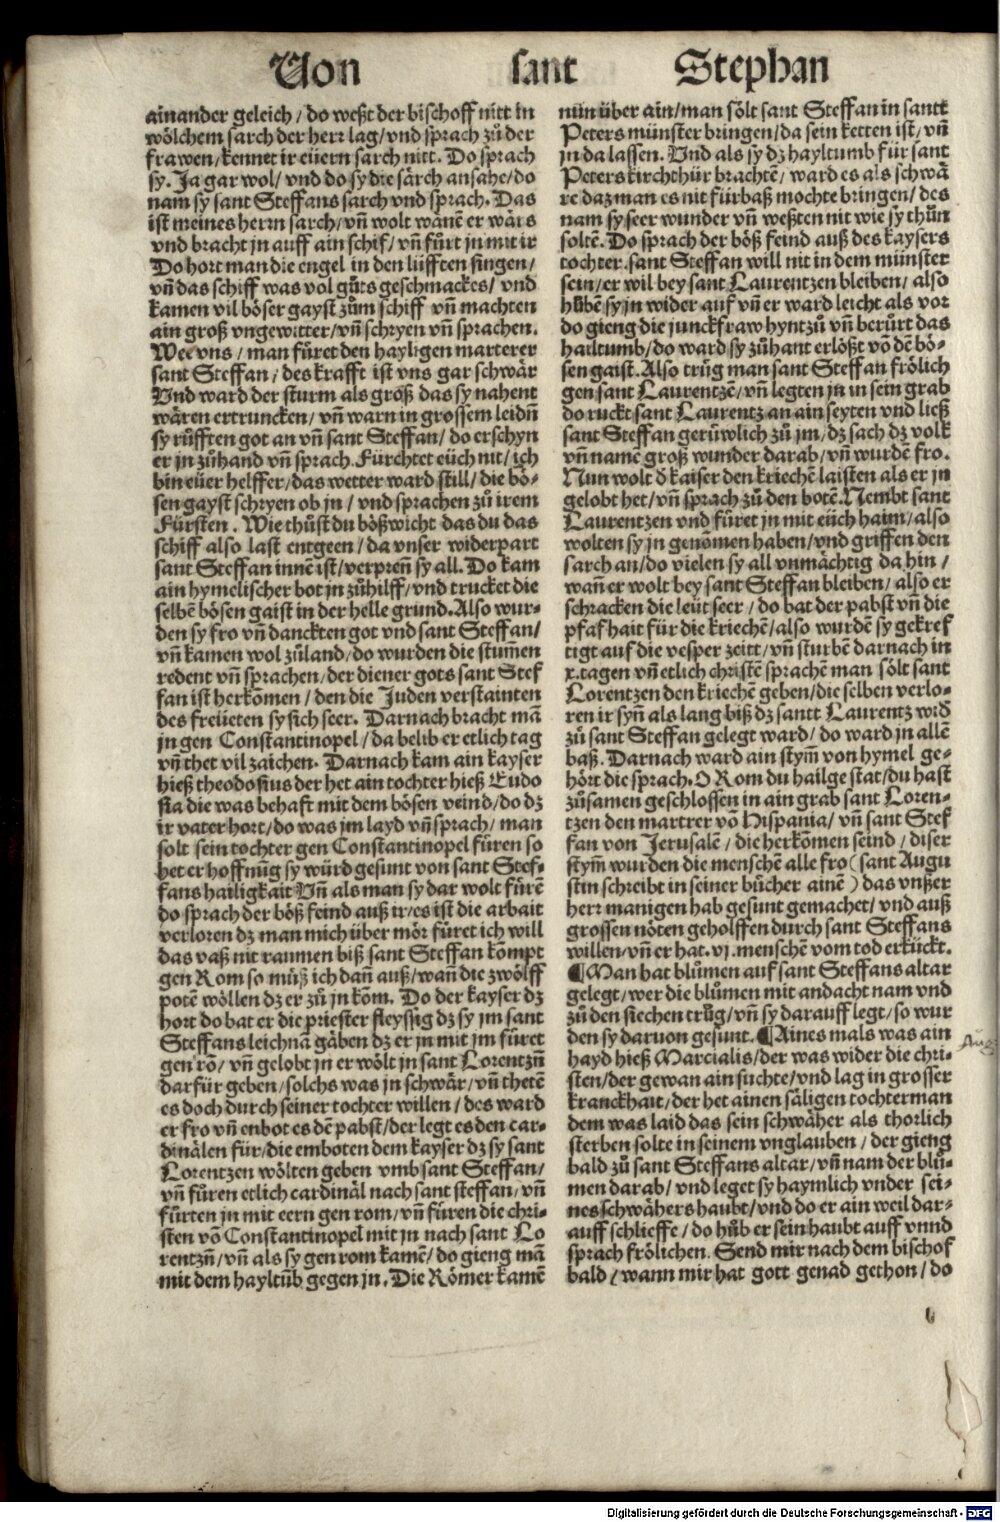 Von sant Stephan
ainander geleich / do weßt der bischoff nitt in
wölchem sarch der herr lag / vnd sprach zů der
frawen / kennet ir eüern sarch nitt. Do sprach
sy. Ja gar wol / vnd do sy die särch ansahe / do
nam sy sant Steffans sarch vnd sprach. Das
ist meines herrn sarch / vñ wolt wänē er wärs
vnd bracht jn auff ain schif / vñ fůrt jn mit ir
Do hort man die engel in den lüfften singen /
vñ das schiff was vol gůts geschmackes / vnd
kamen vil böser gayst zům schiff vñ machten
ain groß vngewitter / vñ schryen vñ sprachen.
Wee vns / man füret den hayligen marterer
sant Steffan / des krafft ist vns gar schwär
Vnd ward der sturm als groß das sy nahent
wären ertruncken / vñ warn in grossem leidñ
sy růfften got an vñ sant Steffan / do erschyn
er jn zůhand vñ sprach. Fürchtet eüch nit / ich
bin eüer helffer / das wetter ward still / die bö-
sen gayst schryen ob jn / vnd sprachen zů irem
Fürsten. Wie thůst du bößwicht das du das
schiff also last entgeen / da vnser widerpart
sant Steffan innē ist / verpreñ sy all. Do kam
ain hymelischer bot jn zůhilff / vnd trucket die
selbē bösen gaist in der helle grund. Also wur-
den sy fro vñ danckten got vnd sant Steffan /
vñ kamen wol zůland / do wurden die stum̄en
redent vñ sprachen / der diener gots sant Stef
fan ist herkōmen / den die Juden verstainten
des freüeten sy sich seer. Darnach bracht mā
jn gen Constantinopel / da belib er etlich tag
vñ thet vil zaichen. Darnach kam ain kayser
hieß theodosius der het ain tochter hieß Eudo
sia die was behaft mit dem bösen veind / do dz
ir vater hort / do was jm layd vñ sprach / man
solt sein tochter gen Constantinopel füren so
het er hoffnūg sy würd gesunt von sant Stef-
fans hailigkait Vñ als man sy dar wolt fürē
do sprach der böß feind auß ir / es ist die arbait
verloren dz man mich über mör füret ich will
das vaß nit raumen biß sant Steffan kōmpt
gen Rom so můß ich dañ auß / wañ die zwölff
potē wöllen dz er zů jn kōm. Do der kayser dz
hort do bat er die priester fleyssig dz sy jm sant
Steffans leichnā gäben dz er jn mit jm füret
gen rō / vñ gelobt jn er wölt jn sant Lorentzñ
darfür geben / solchs was jn schwär / vñ thetē
es doch durch seiner tochter willen / des ward
er fro vñ enbot es dē pabst / der legt es den car-
dinälen für / die emboten dem kayser dz sy sant
Lorentzen wölten geben vmb sant Steffan /
vñ füren etlich cardinäl nach sant steffan / vñ
fürten jn mit eern gen rom / vñ füren die chri-
sten vō Constantinopel mit jn nach sant Lo
rentzñ / vñ als sy gen rom kamē / do gieng mā
mit dem hayltūb gegen jn. Die Römer kamē
nun über ain / man sölt sant Steffan in santt
Peters münster bringen / da sein ketten ist / vñ
jn da lassen. Vnd als sy dz hayltumb für sant
Peters kirchthür brachtē / ward es als schwä
re daz man es nit fürbaß mochte bringen / des
nam sy seer wunder vñ weßten nit wie sy thůn
soltē. Do sprach der böß feind auß des kaysers
tochter. sant Steffan will nit in dem münster
sein / er wil bey sant Laurentzen bleiben / also
hůbē sy jn wider auf vñ er ward leicht als vor
do gieng die junckfraw hyntzů vñ berůrt das
hailtumb / do ward sy zůhant erlößt vō dē bö-
sen gaist. Also trůg man sant Steffan frölich
gen sant Laurentzē / vñ legten jn in sein grab
do ruckt sant Laurentz an ain seyten vnd ließ
sant Steffan gerüwlich zů jm / dz sach dz volk
vñ namē groß wunder darab / vñ wurdē fro.
Nun wolt d̄ kaiser den kriechē laisten als er jn
gelobt het / vñ sprach zů den botē. Nembt sant
Laurentzen vnd füret jn mit eüch haim / also
wolten sy jn genōmen haben / vnd griffen den
sarch an / do vielen sy all vnmächtig da hin /
wañ er wolt bey sant Steffan bleiben / also er
schracken die leüt seer / do bat der pabst vñ die
pfafhait für die kriechē / also wurdē sy gekref
tigt auf die vesper zeitt / vñ sturbē darnach in
x. tagen vñ etlich christē sprachē man sölt sant
Lorentzen den kriechē geben / die selben verlo-
ren ir syñ als lang biß dz santt Laurentz wid̄
zů sant Steffan gelegt ward / do ward jn allē
baß. Darnach ward ain stym̄ von hymel ge-
hört die sprach. O Rom du hailge stat / du hast
zůsamen geschlossen in ain grab sant Loren-
tzen den martrer vō Hispania / vñ sant Stef
fan von Jerusalē / die herkōmen seind / diser
stym̄ wurden die menschē alle fro (sant Augu
stin schreibt in seiner bücher ainē) das vnßer
herr manigen hab gesunt gemachet / vnd auß
grossen nöten geholffen durch sant Steffans
willen / vñ er hat. vj. menschē vom tod erkückt.
¶ Man hat blůmen auf sant Steffans altar
gelegt / wer die blůmen mit andacht nam vnd
zů den siechen trůg / vñ sy darauff legt / so wur
den sy daruon gesunt. ¶ Aines mals was ain
hayd hieß Marcialis / der was wider die chri-
sten / der gewan ain suchte / vnd lag in grosser
kranckhait / der het ainen säligen tochterman
dem was laid das sein schwäher als thorlich
sterben solte in seinem vnglauben / der gieng
bald zů sant Steffans altar / vñ nam der blů-
men darab / vnd leget sy haymlich vnder sei-
nes schwähers haubt / vnd do er ain weil dar-
auff schlieffe / do hůb er sein haubt auff vnnd
sprach frölichen. Send mir nach dem bischof
bald / wann mir hat gott genad gethon / do
Aug
Digitalisierung gefördert durch die Deutsche Forschungsgemeinschaft - DFG